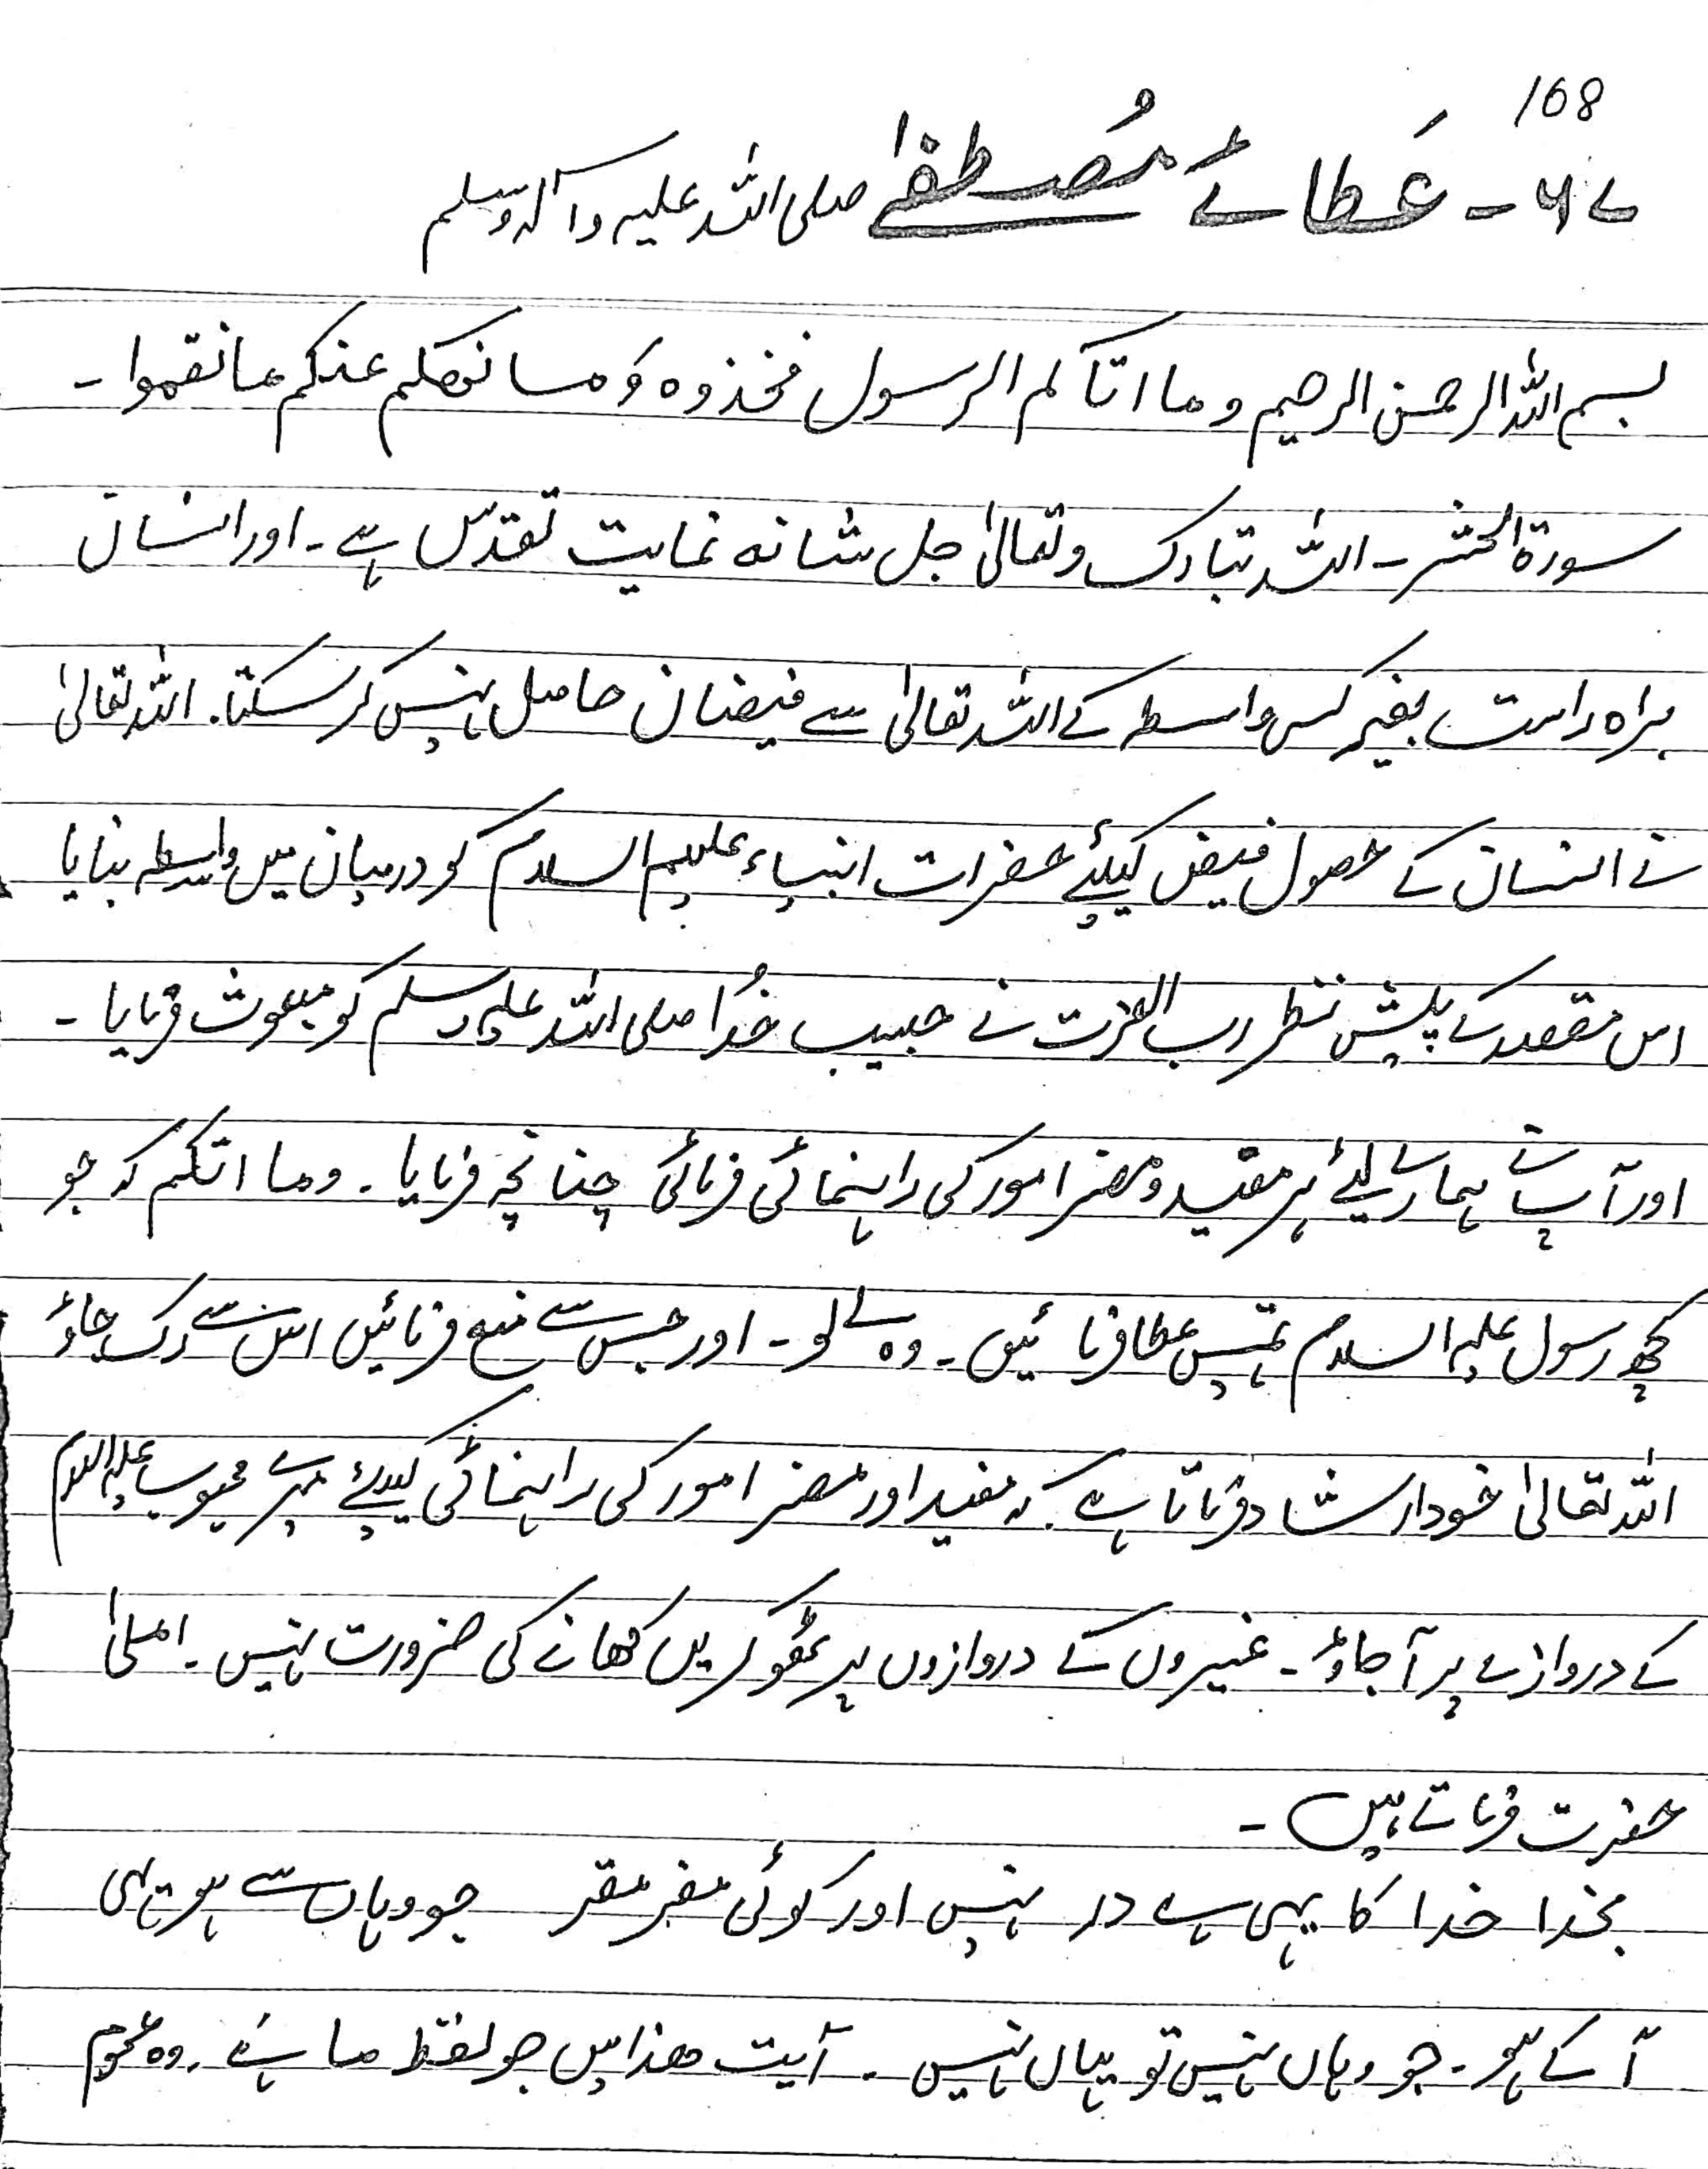 168
۶۷۔ عَطائے مُصطفےٰ صلی اللہ علیہ وآلہ وسلم
بسم اللہ الرحمن الرحیم وما اتاکم الرسول فخذوہ وَمسا نھکم عنکم مانقموا۔
سورۃ الحشر۔ اللہ تبارک وتعالیٰ جل شانہ نہایت تقدس ہے۔ اور انسان
براہ راست بغیر کسی واسطہ کے اللہ تعالیٰ سے فیضان حاصل نہیں کر سکتا۔ اللہ تعالیٰ
نے انسان کے حصول فیض کیلئے حضرات انبیاء علیہم السلام کو درمیان میں واسطہ بنایا
اس مقصد کے پیش نظر رب العزت نے حبیب خُدا صلی اللہ علیہ وسلم کو مبعوث فرمایا۔
اور آپ نے ہمارے لیئے ہر مفید و مضر امور کی راہنمائی فرمائی چنانچہ فرمایا۔ وما اتکم کہ جو
کچھ رسول علیہ السلام تمہیں عطا فرمائیں۔ وہ لے لو۔ اور جس سے منع فرمائیں اس سے رک جاؤ
اللہ تعالیٰ خود ارشاد فرماتا ہے۔ کہ مفید اور مضر امور کی راہنمائی کیلئے میرے محبوب علیہ السلام
کے دروازے پر آجاؤ۔ غیروں کے دروازوں پر ٹھوکریں کھانے کی ضرورت نہیں۔ اعلیٰ
حضرت فرماتے ہیں۔
بخدا خدا کا یہی ہے در نہیں اور کوئی مفر مقر جو وہاں سے ہو یہی
آ کے ہو۔ جو وہاں نہیں تو یہاں نہیں۔ آیت ھذا میں جو لفظ ما ہے۔ وہ عموم